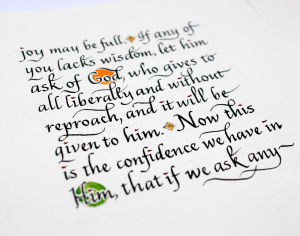 joy may be full. If any of
you lacks wisdom, let him
ask of God, who gives to
all liberally and without
reproach, and it will be
given to him. Now this
is the confidence we have in
Him, that if we ask any-